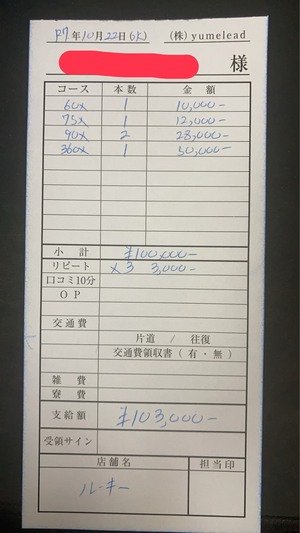 R7年10月22日(水) (株)yumelead
様
コース 本数 金額
60× 1 10,000-
75× 1 12,000-
90× 2 28,000-
360× 1 50,000-
小計 ¥100,000-
リピート ×3 3,000-
口コミ10分
OP
交通費
片道 / 往復
交通費領収書(有・無)
雑費
寮費
支給額 ¥103,000-
受領サイン
店舗名 担当印
ルーキー